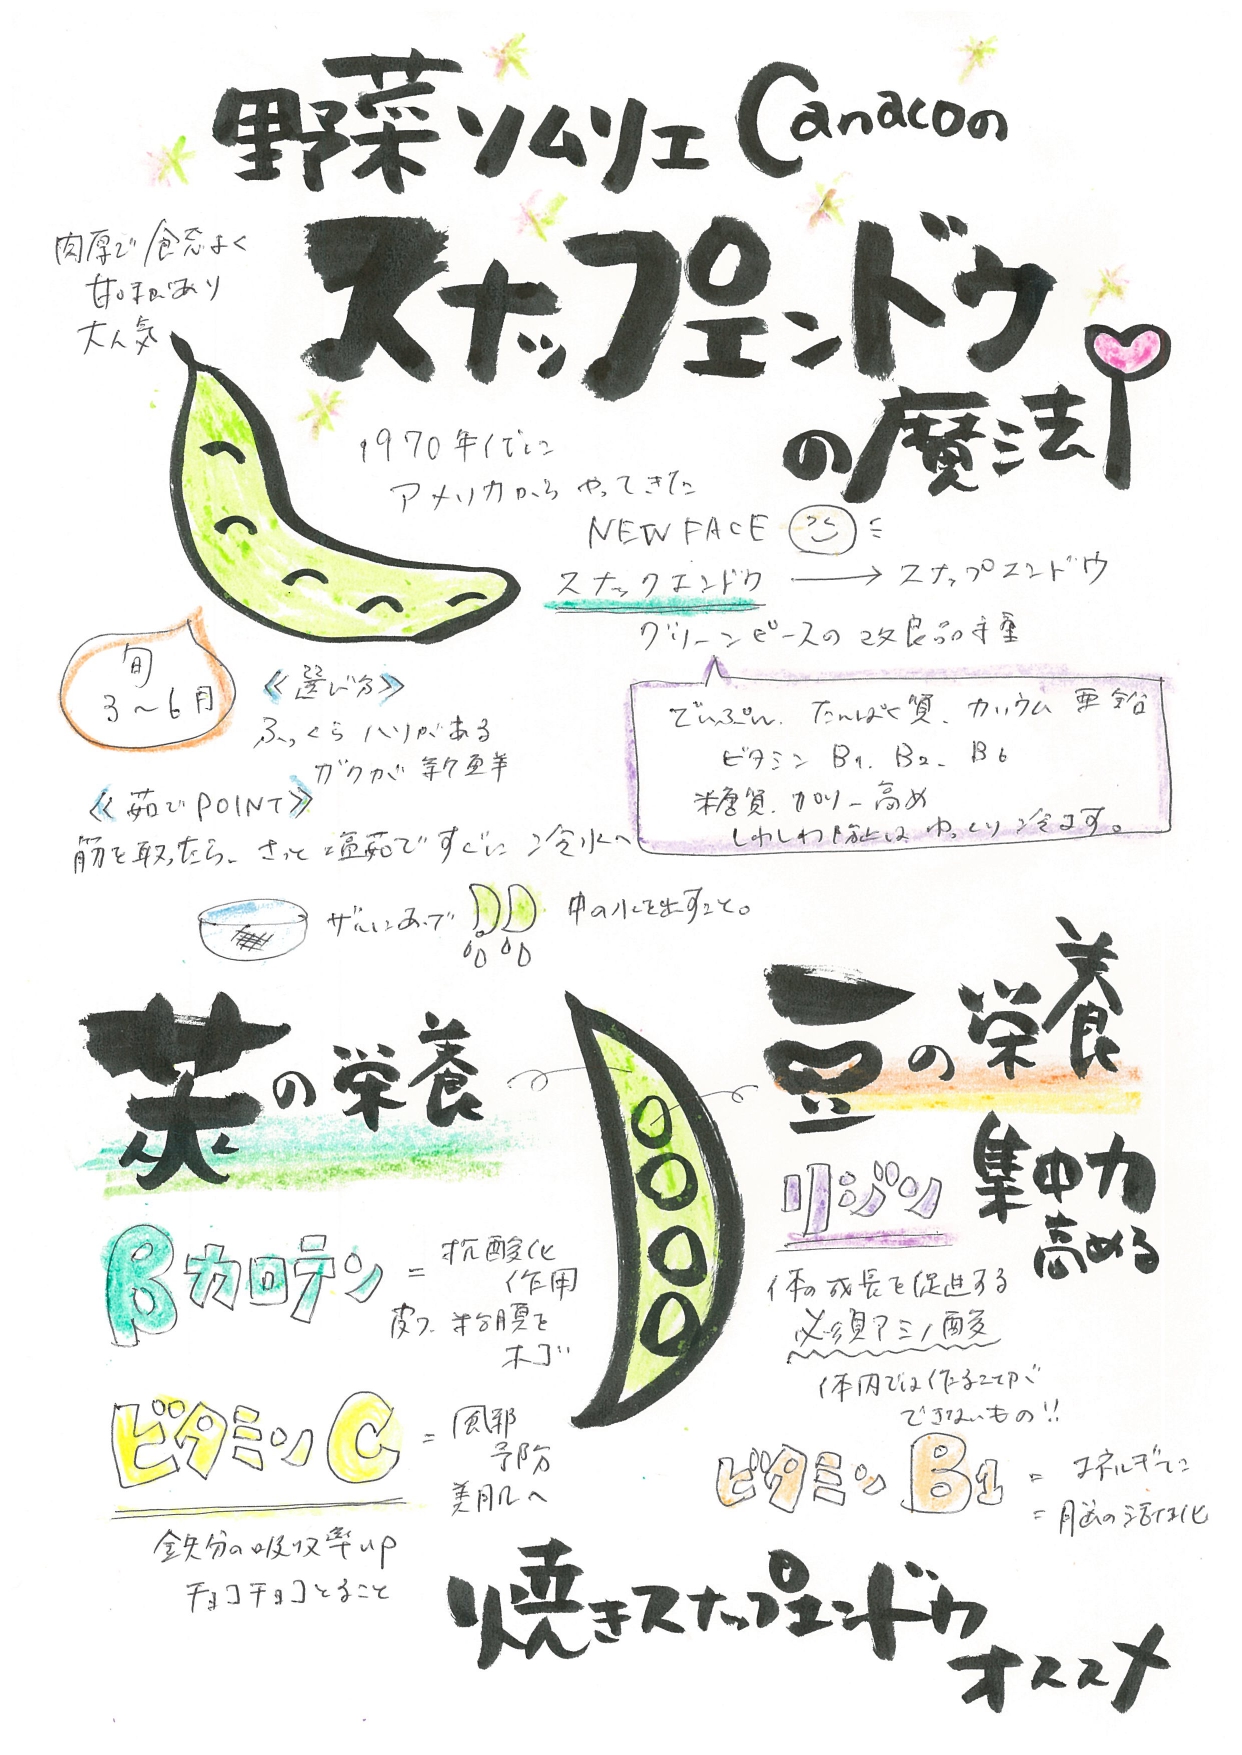 野菜ソムリエ Canacoの
スナップエンドウ
の魔法
肉厚で食感よく
甘味があり
大人気
1970年代に
アメリカから やってきた
NEW FACE
スナックエンドウ → スナップエンドウ
グリーンピースの改良品種
旬
3〜6月
《選び方》
ふっくら ハリがある
ガクが新鮮
でんぷん、たんぱく質、カリウム 亜鉛
ビタミン B1、B2、B6
糖質、カロリー高め
しわしわ防止は ゆっくり冷ます。
《茹でPOINT》
筋を取ったら、さっと塩茹で すぐに冷水へ
ザルにあげ 中の水を出すこと。
莢の栄養
βカロテン = 抗酸化
作用
皮フ、粘膜を
ホゴ
ビタミンC = 風邪
予防
美肌へ
鉄分の吸収率up
チョコチョコとること
豆の栄養
リジン 集中力
高める
体の成長を促進する
必須アミノ酸
体内では作ることが
できないもの!!
ビタミン B1 = エネルギーに
= 脳の活性化
焼きスナップエンドウ
オススメ